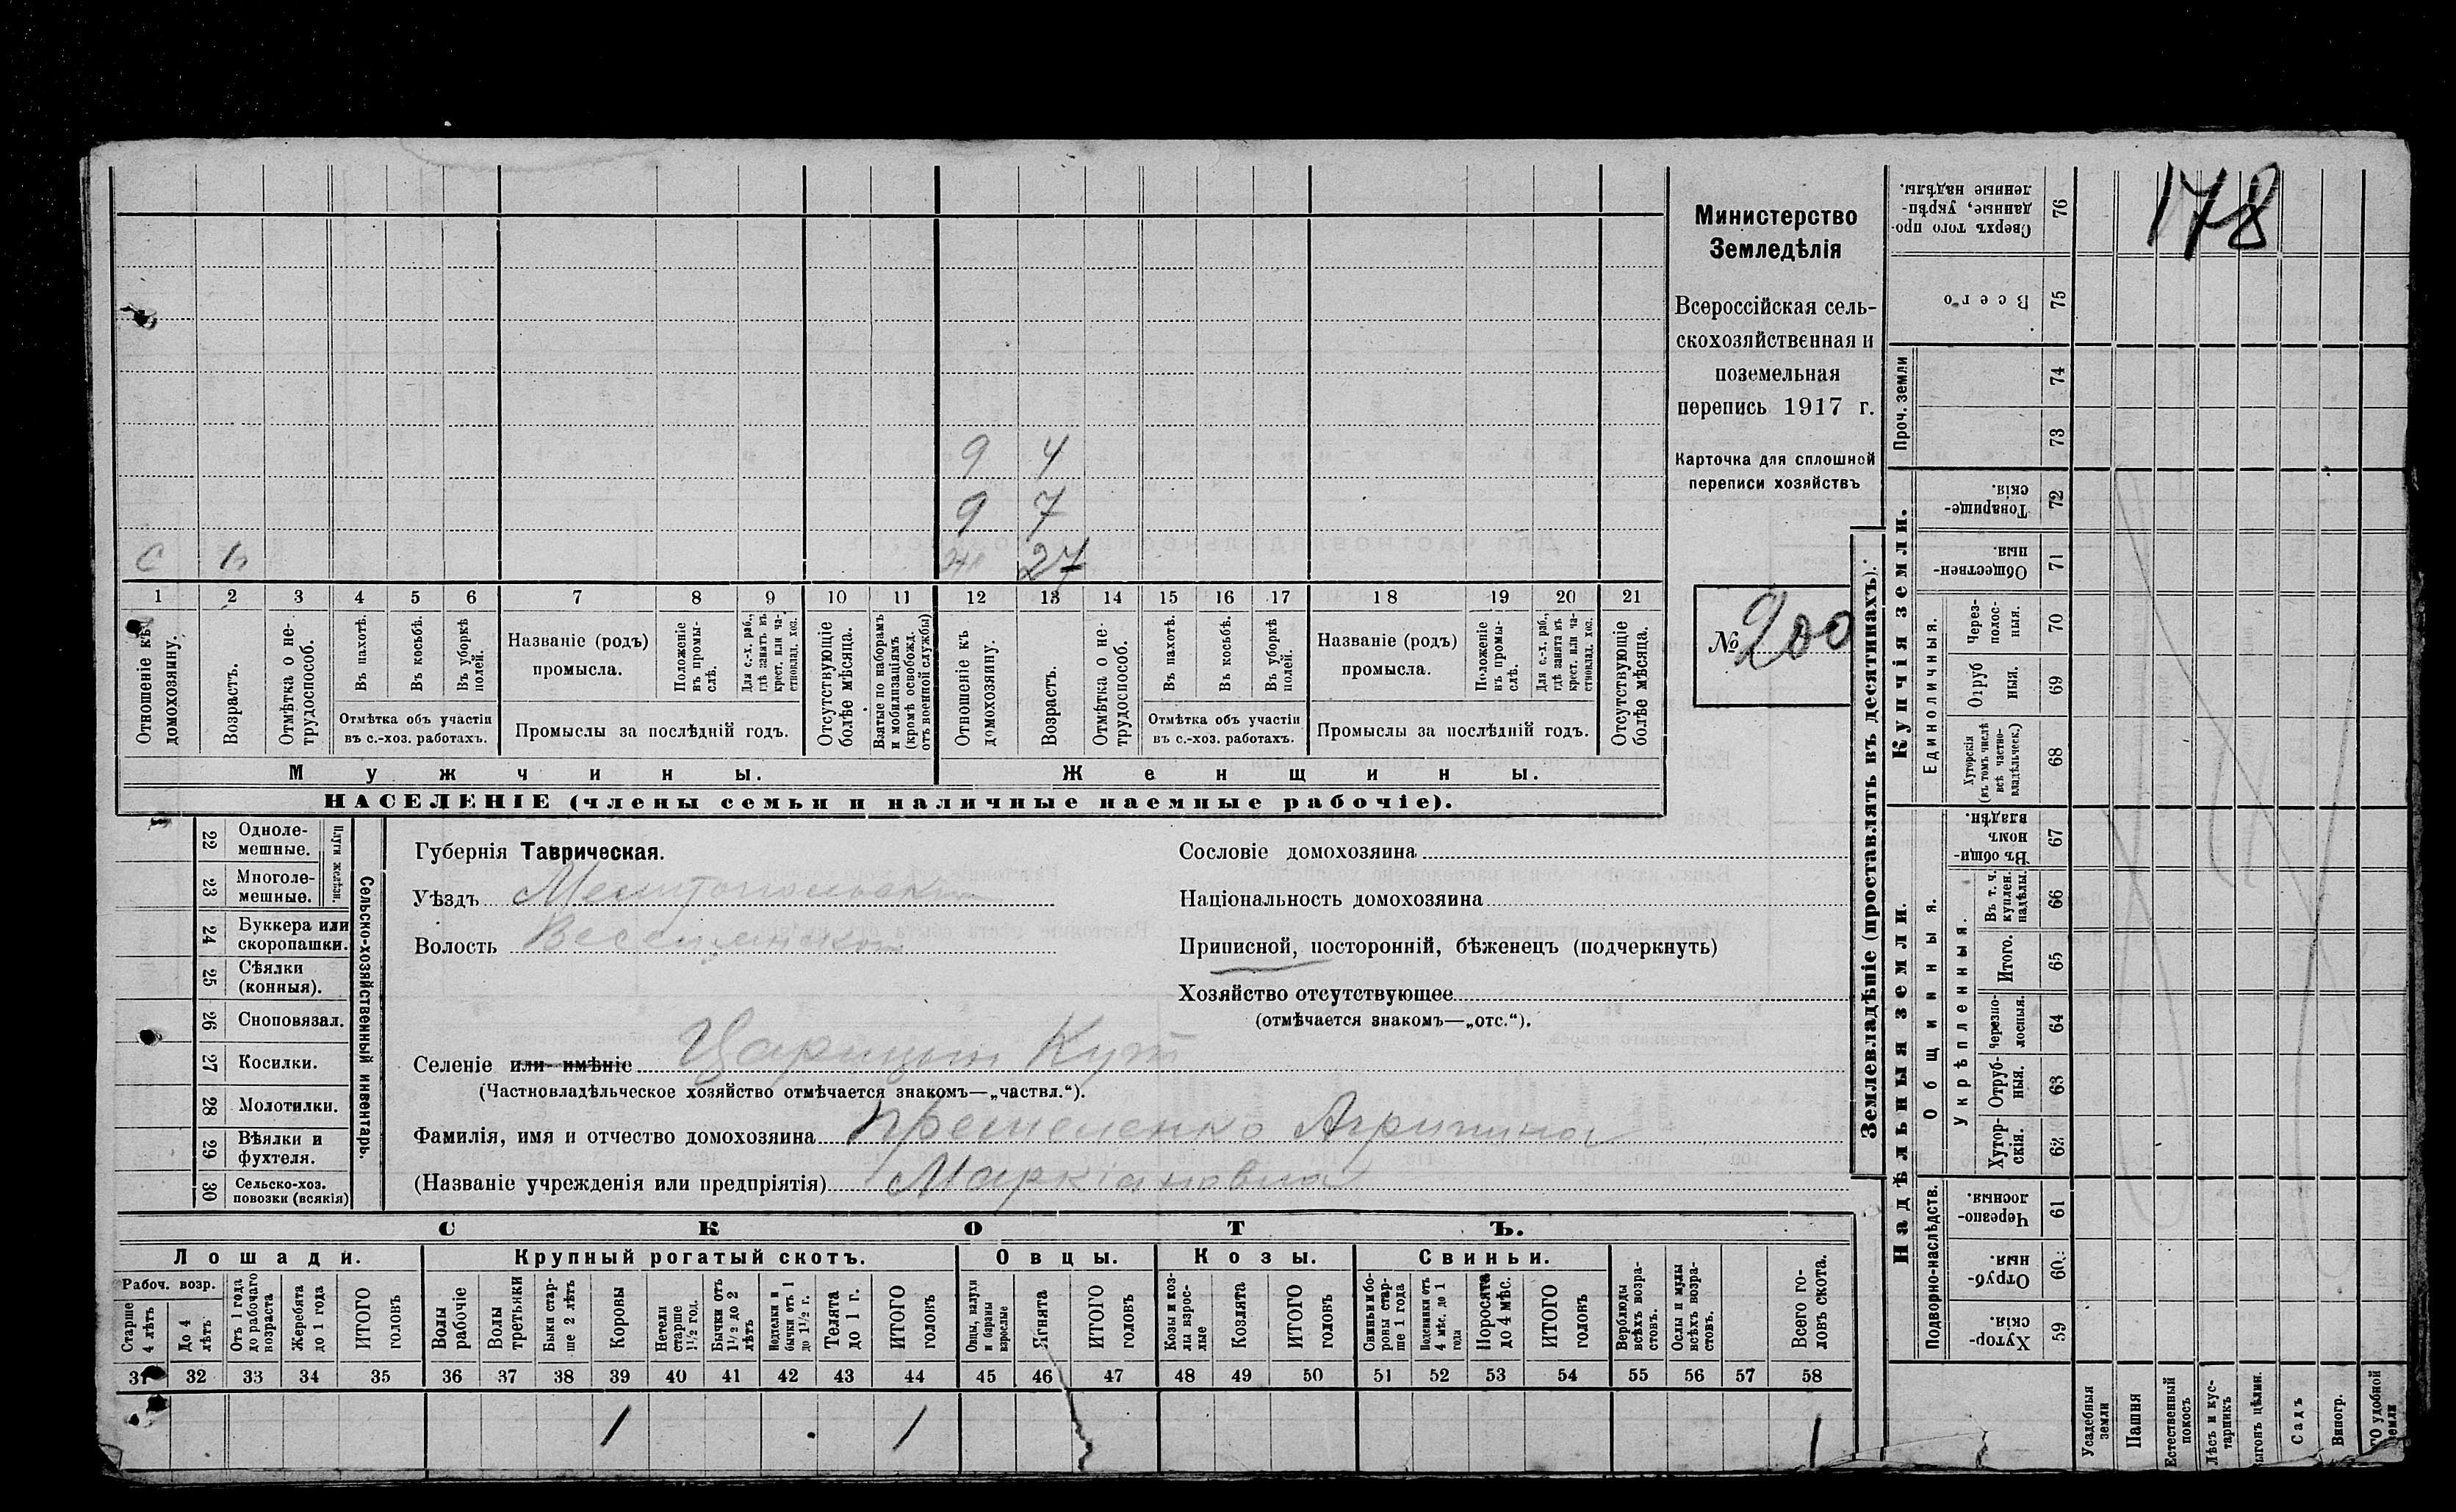 178
Министерство
Земледѣлія
Всероссійская сель-
скохозяйственная и
поземельная
перепись 1917 г.
Карточка для сплошной
переписи хозяйствъ
№ 200
9 4
9 7
27
С
1 2 3 4 5 6 7 8 9 10 11 12 13 14 15 16 17 18 19 20 21
Отношеніе къ домохозяину.
Возрастъ.
Отмѣтка о не-
трудоспособ.
Въ пахотѣ.
Въ косьбѣ.
Въ уборкѣ
полей.
Отмѣтка объ участіи
въ с.-хоз. работахъ.
Названіе (родъ)
промысла.
Положеніе
въ промы-
слѣ.
Для с.-х. раб.,
гдѣ занятъ въ
крест. или ча-
стновлад. хоз.
Промыслы за послѣдній годъ.
Отсутствующіе
болѣе мѣсяца.
Взятые по наборамъ
и мобилизаціямъ
(кромѣ освобожд.
отъ военной службы)
Отношеніе къ
домохозяину.
Возрастъ.
Отмѣтка о не-
трудоспособ.
Въ пахотѣ.
Въ косьбѣ.
Въ уборкѣ
полей.
Отмѣтка объ участіи
въ с.-хоз. работахъ.
Названіе (родъ)
промысла.
Положеніе
въ промы-
слѣ.
Для с.-х. раб.,
гдѣ занята въ
крест. или ча-
стновлад. хоз.
Промыслы за послѣдній годъ.
Отсутствующіе
болѣе мѣсяца.
Мужчины.
Женщины.
НАСЕЛЕНІЕ (члены семьи и наличные наемные рабочіе).
22 Одноле-
мешные.
23 Многоле-
мешные.
Плуги желѣзн.
24 Буккера или
скоропашки.
25 Сѣялки
(конныя).
26 Сноповязал.
27 Косилки.
28 Молотилки.
29 Вѣялки и
фухтеля.
30 Сельско-хоз.
повозки (всякія)
Сельско-хозяйственный инвентарь.
Губернія Таврическая.
Уѣздъ Мелитопольскій
Волость Веселянская
Селеніе или имѣніе Царицын Кут
(Частновладѣльческое хозяйство отмѣчается знакомъ—„частвл.“).
Фамилія, имя и отчество домохозяина Агрипина
(Названіе учрежденія или предпріятія) Маркіановна
Сословіе домохозяина
Національность домохозяина
Приписной, посторонній, бѣженецъ (подчеркнуть)
Хозяйство отсутствующее
(отмѣчается знакомъ—„отс.“).
СКОТЪ.
Лошади.
Крупный рогатый скотъ.
Овцы.
Козы.
Свиньи.
Рабоч. возр.
Старше
4 лѣтъ
До 4
лѣтъ
Отъ 1 года
до рабочаго
возраста
Жеребята
до 1 года
ИТОГО
головъ
Волы
рабочіе
Волы
третьяки
Быки стар-
ше 2 лѣтъ
Коровы
Нетели
старше
1½ год.
Бычки отъ
1½ до 2
лѣтъ
Подтелки и
бычки отъ 1
до 1½ г.
Телята
до 1 г.
ИТОГО
головъ
Овцы, валухи
и бараны
взрослые
Ягнята
ИТОГО
головъ
Козы и коз-
лы взрос-
лые
Козлята
ИТОГО
головъ
Свиньи и бо-
ровы стар-
ше 1 года
Подсвинки отъ
4 мѣс. до 1
года
Поросята
до 4 мѣс.
ИТОГО
головъ
Верблюды
всѣхъ возра-
стовъ.
Ослы и мулы
всѣхъ возра-
стовъ.
Всего го-
ловъ скота.
31 32 33 34 35 36 37 38 39 40 41 42 43 44 45 46 47 48 49 50 51 52 53 54 55 56 57 58
1 1 1
Землевладѣніе (проставлять въ десятинахъ).
Надѣльныя земли.
Купчія земли.
Проч. земли
Подворно-наслѣдств.
Общинныя.
Укрѣпленныя.
Единоличныя.
76 Сверхъ того про-
данные, укрѣп-
ленные надѣлы.
75 Всего
74
73
72 Товарище-
скія.
71 Обществен-
ныя.
70 Через-
полос-
ныя.
69 Отруб
ныя.
68 Хуторскія
(въ томъ числѣ
всѣ частно-
владѣльческ.)
67 Въ общи-
номъ
владѣн.
66 Въ т. ч.
куплен.
надѣлы.
65 Итого.
64 Черезпо-
лосныя.
63 Отруб-
ныя.
62 Хутор-
скія.
61 Черезпо-
лосныя.
60 Отруб-
ныя.
59 Хутор-
скія.
Усадебныя
земли
Пашня
Естественный
покосъ
Лѣсъ и кус-
тарникъ
Садъ
Виногр.
удобной
земли